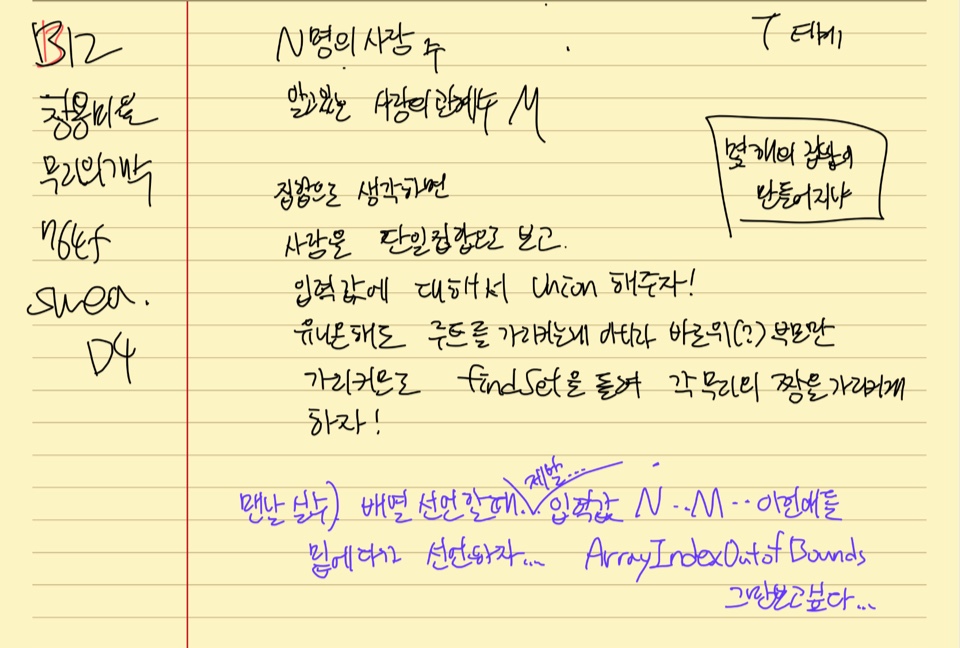 B12
창용마을
무리의개수
7465
swea.
D4
N명의 사람 수
알고있는 사람의관계수 M
T 테케
몇개의 집합이
만들어지냐
집합으로 생각하면
사람을 단일집합으로 보고.
입력값에 대해서 Union 해주자!
유니온해도 루트를 가리키는게 아니라 바로위(?) 부모만
가리키므로 findSet을 돌려 각 무리의 짱을 가리키게
하자!
맨날 실수) 배열 선언할때 제발... 입력값 N..M..이런애들
밑에다가 선언하자... ArrayIndexOutofBounds
그만보고싶다...